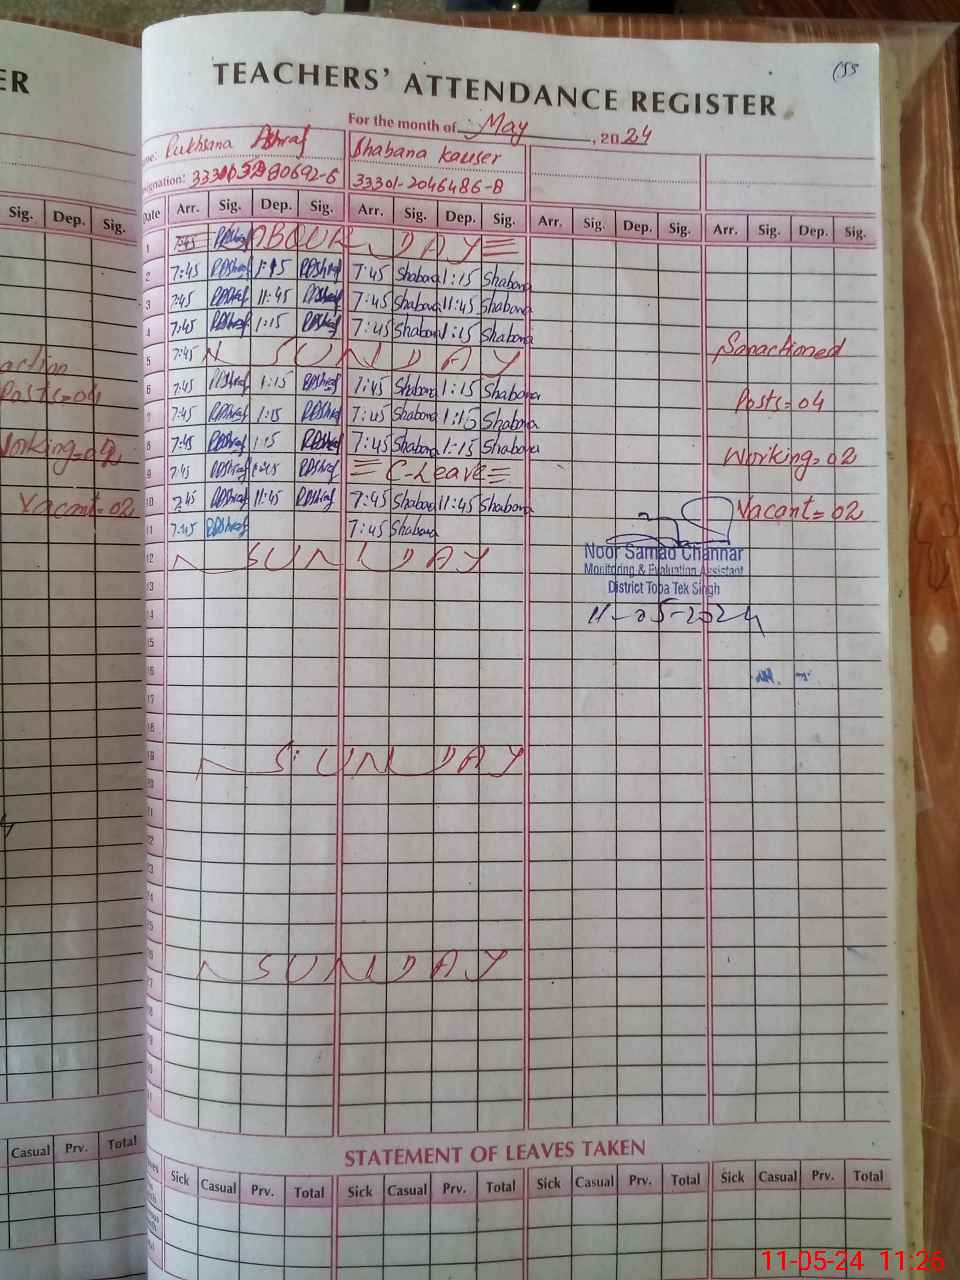 ER
Sig. Dep. Sig.
action
Posts=04
Working=02
Vacant=02
Casual Prv. Total
TEACHERS' ATTENDANCE REGISTER
For the month of May, 2024
Rukhsana Ashraf Shabana Kauser
33301-2046486-8
Date Arr. Sig. Dep. Sig. Arr. Sig. Dep. Sig. Arr. Sig. Dep. Sig. Arr. Sig. Dep. Sig.
1 7:45 LABOUR DAY
2 7:45 1:15 7:45 Shabana 1:15 Shabana
3 7:45 11:45 7:45 Shabana 11:45 Shabana
4 7:45 1:15 7:45 Shabana 1:15 Shabana
Sanactioned
5 7:45 SUNDAY
6 7:45 1:15 7:45 Shabana 1:15 Shabana
Posts=04
7 7:45 1:15 7:45 Shabana 1:15 Shabana
8 7:45 1:15 7:45 Shabana 1:15 Shabana
Working=02
9 7:45 C-Leave
10 7:45 11:45 7:45 Shabana 11:45 Shabana
Vacant=02
11 7:45 7:45 Shabana
12 SUNDAY
Noor Samad Channar
Monitoring & Evaluation Assistant
District Toba Tek Singh
11-05-2024
13
14
15
16
17
18
19 SUNDAY
20
21
22
23
24
25
26 SUNDAY
27
28
29
STATEMENT OF LEAVES TAKEN
Sick Casual Prv. Total Sick Casual Prv. Total Sick Casual Prv. Total Sick Casual Prv. Total
11-05-24 11:26